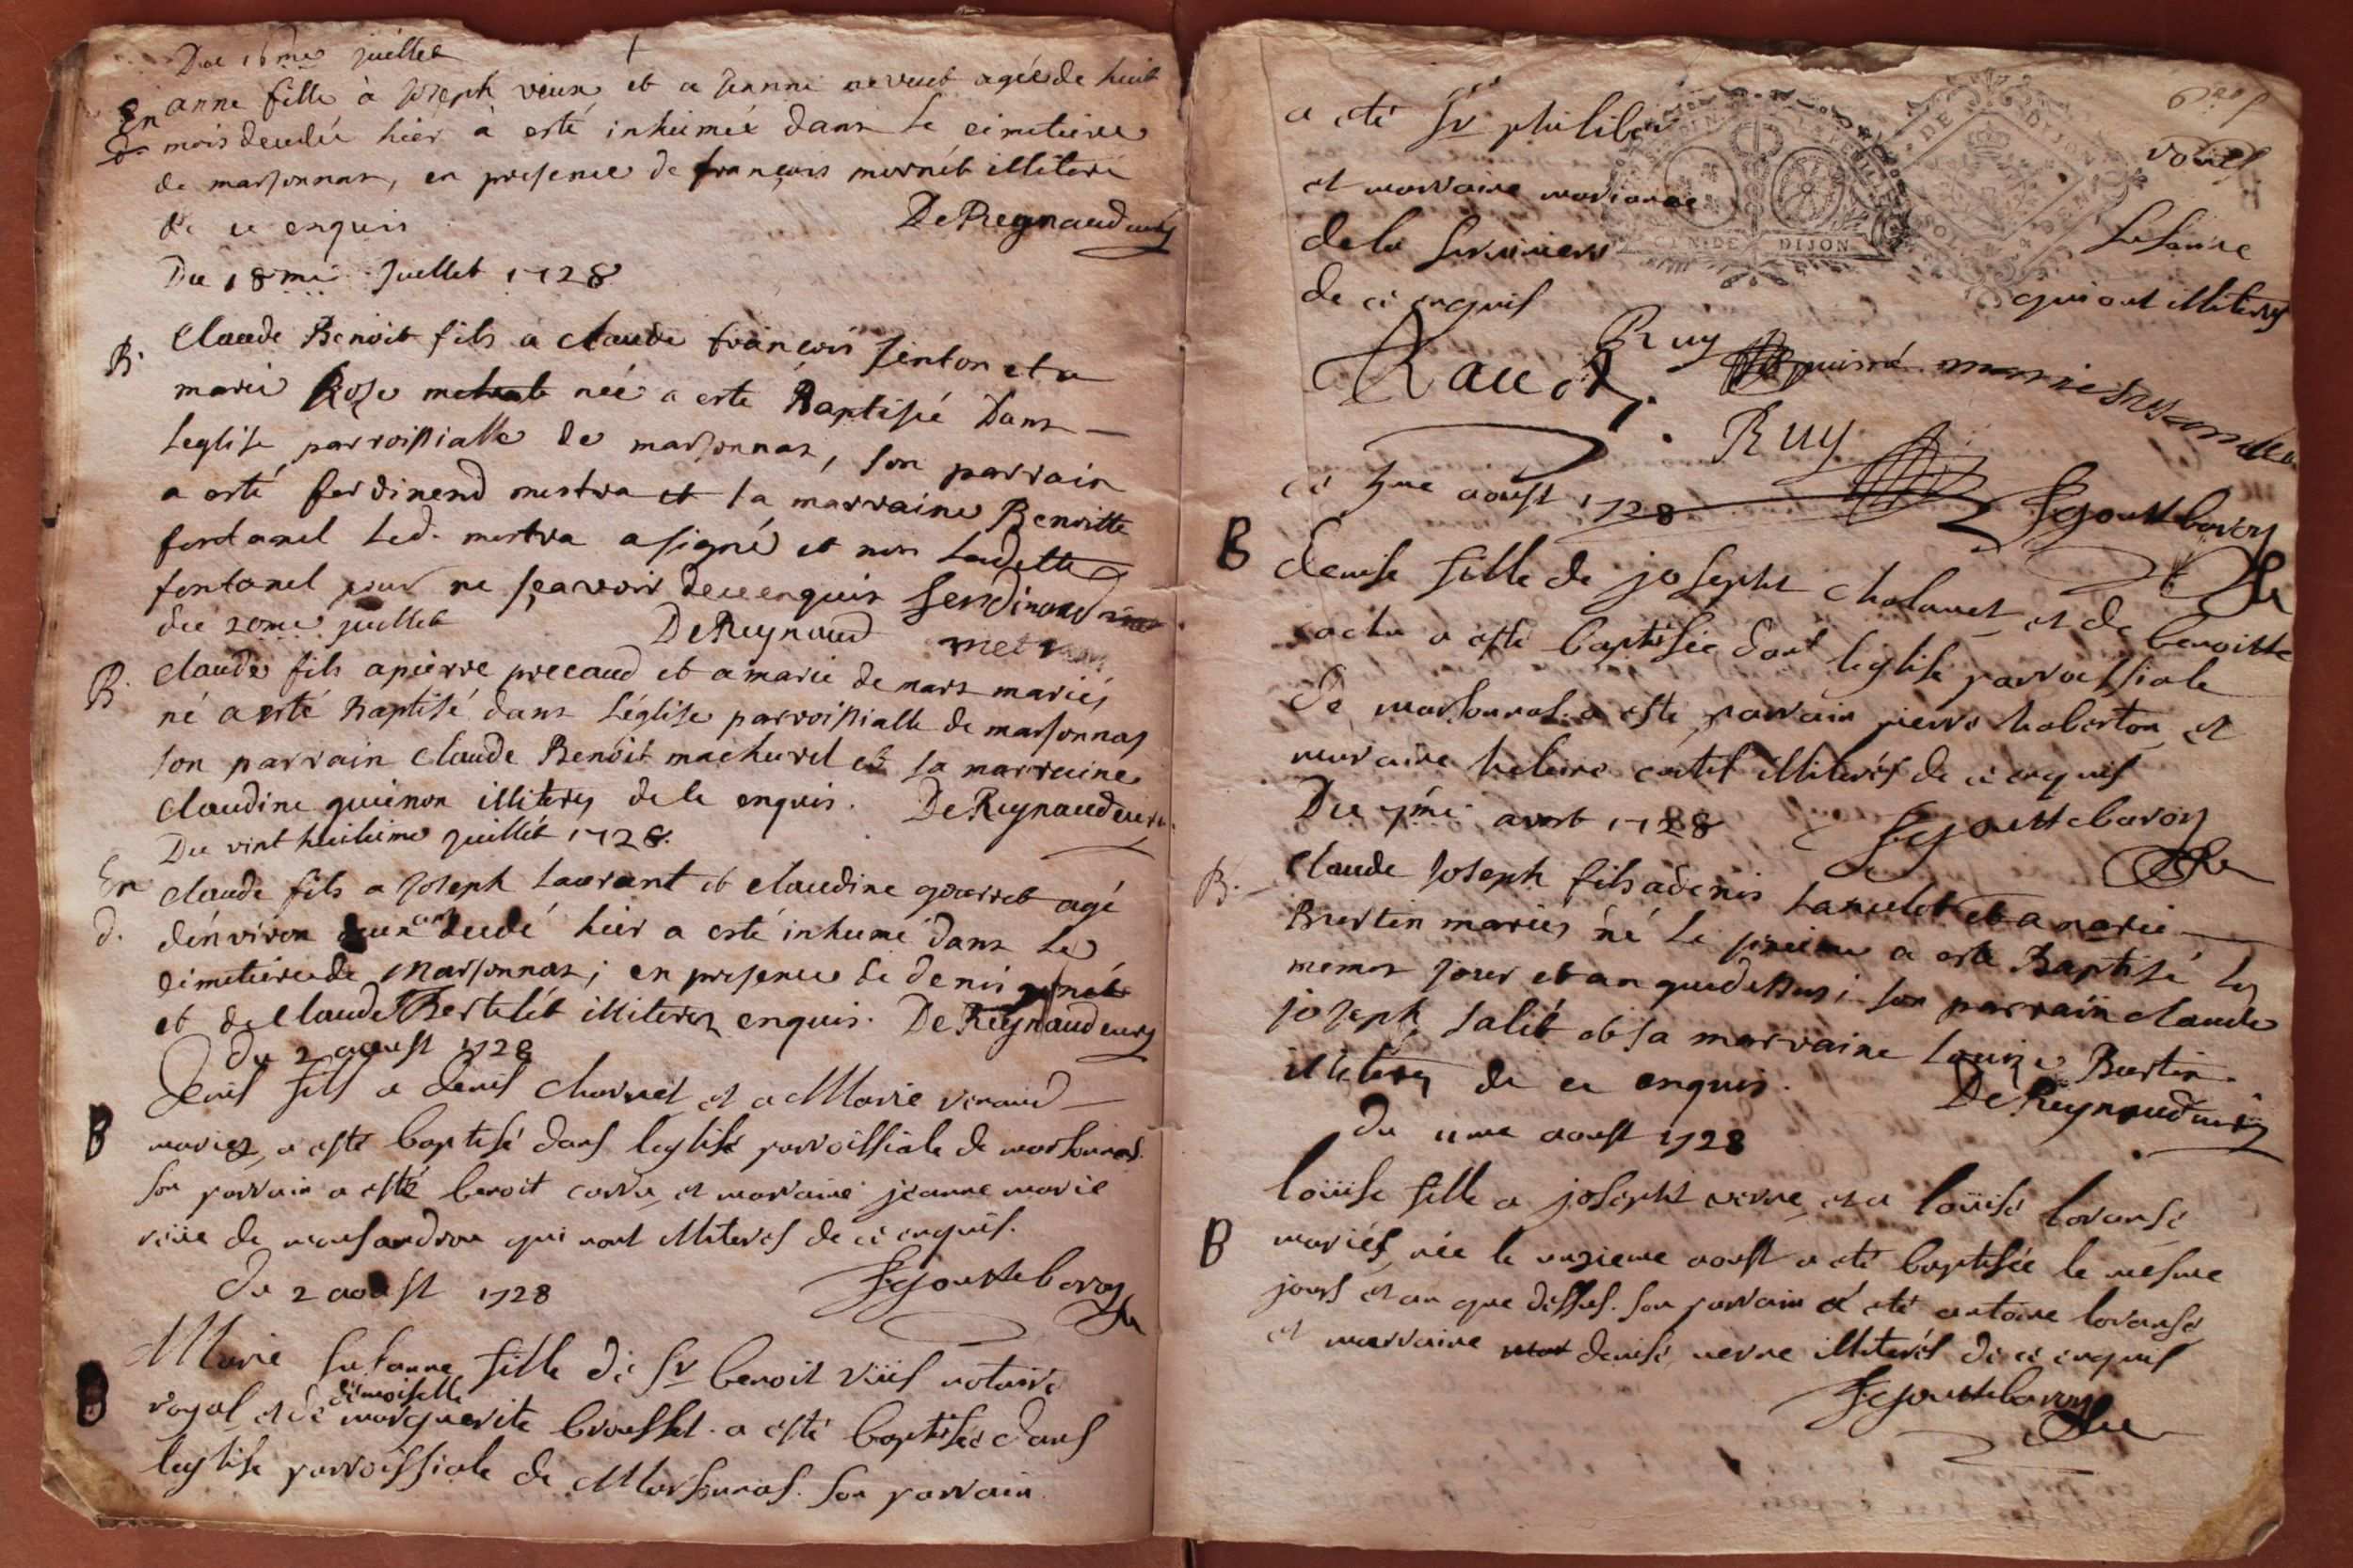 Du 16me juillet
En anne fille à Joseph vieux et a Jeanne nevuet agée de huit
d. mois decedée hier a esté inhumée dans le cimetiere
de marsonnas, en presence de françois mornét illiteré
de ce enquis DeReynaud curé
Du 18me Juellet 1728
B. Claude Benoit fils a claude françois finton et a
marie Rose née a esté Baptisé Dans
leglise parroissialle de marsonnas, son parrain
a esté ferdinend mestra et sa marraine Benoitte
fontanel led. mestra a signé et non ladette
fontanel pour ne sçavoir de ce enquis ferdinand
du 20me juillet DeReynaud
B. Claude fils a pierre precaud et a marie de mars mariés
né a esté Baptisé dans l'église parroissialle de marsonnas
son parrain Claude Benoit machurel et sa marraine
Claudine guienon illiterés de ce enquis. DeReynaud curé
Du vint huitieme juillét 1728.
En Claude fils a Joseph laurant et claudine gourret agé
d. d'environ deux ans decedé hier a esté inhumé dans le
cimetiere de Marsonnas; en presence de denis
et de Claude Bertelét illiterez enquis. DeReynaud curé
du 2 aoust 1728
Denis fils a denis charnet et a Marie veraud
B mariez, a esté baptisé dans leglise parroissiale de marsonnas.
son parrain a esté benoit carra, et marraine jeanne marie
de qui sont illiterés de ce enquis.
du 2 aoust 1728 Fgouttebaron
Marie susanne fille de Sr benoit viiis notaire
B royal, et de demoiselle marguerite brousset. a esté baptisée dans
leglise parroissiale de Marsonnas. son parrain
a eté Sr philiber
et marraine mariane
de la susanne
de ce enquis qui ont illiterés
Ruy
Ravot. marie susanne
Ruy
ce 7me aoust 1728 Fgouttebaron
B denise fille de joseph cholanet et de benoitte
a esté baptisée dans leglise parroissiale
de marsonnas. a esté parrain pierre haberton et
marraine illiterés de ce enquis
Du 7me aoust 1728 Fgouttebaron
B. Claude Joseph fils a denis lanulet et a marie
Burtin mariés né le a esté Baptisé les
memes jour et an que dessus; son parrain claude
joseph salét et sa marraine Louize Burtin
illiterés de ce enquis. DeReynaud curé
du 11me aoust 1728
louise fille a joseph verne, et a louise loranse
B mariés, née le onzieme aoust a eté baptisée le mesme
jours et an que dessus. son parrain a eté antoine loranse
et marraine denise verne illiterés de ce enquis
Fgouttebaron
GEN. DE DIJON